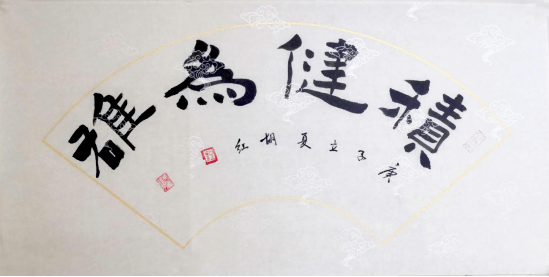 積健為雄
庚子立夏胡红